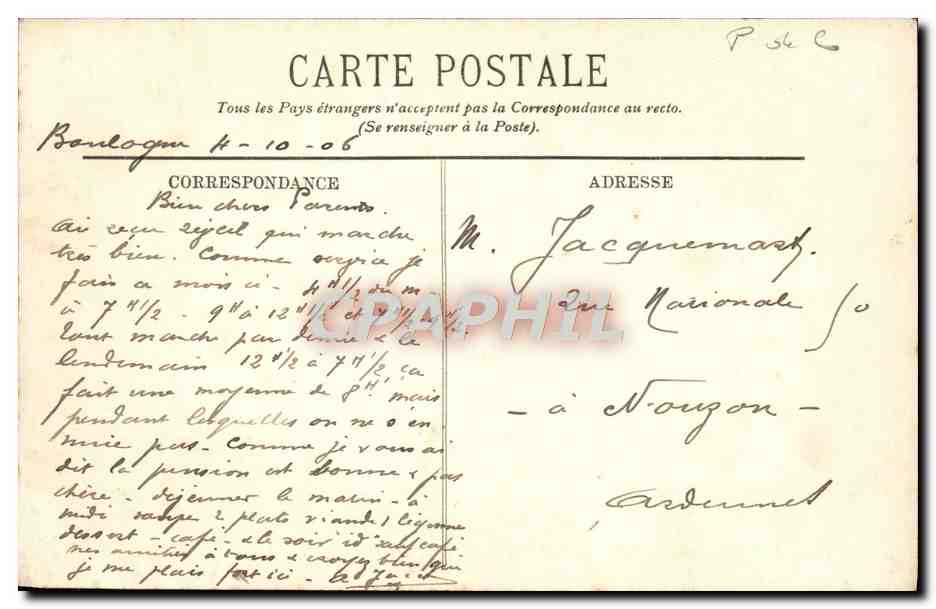 P de C
CARTE POSTALE
Tous les Pays étrangers n'acceptent pas la Correspondance au recto.
(Se renseigner à la Poste).
Boulogne 4-10-06
CORRESPONDANCE
Bien chers Parents.
Ai reçu qui marche
très bien. Comme service je
fais a mois ci - 4H1/2 du m-
à 7H1/2 - 9H à 12H1/2 et
tout marche par & le
lendemain 12H1/2 à 7H1/2 ça
fait une moyenne de 8H. mais
pendant lesquelles on ne s'en
nuie pas - Comme je vous ai
dit la pension est bonne & pas
chère - déjeuner le matin - à
midi soupe 2 plats viande 1 légume
dessert - café - & le soir id sauf café
mes amitiés à tous & croyez bien que
je me plais fort ici -
ADRESSE
M. Jacquemart.
rue Nationale 50
- à Nouzon -
Ardennes
CPAPHIL